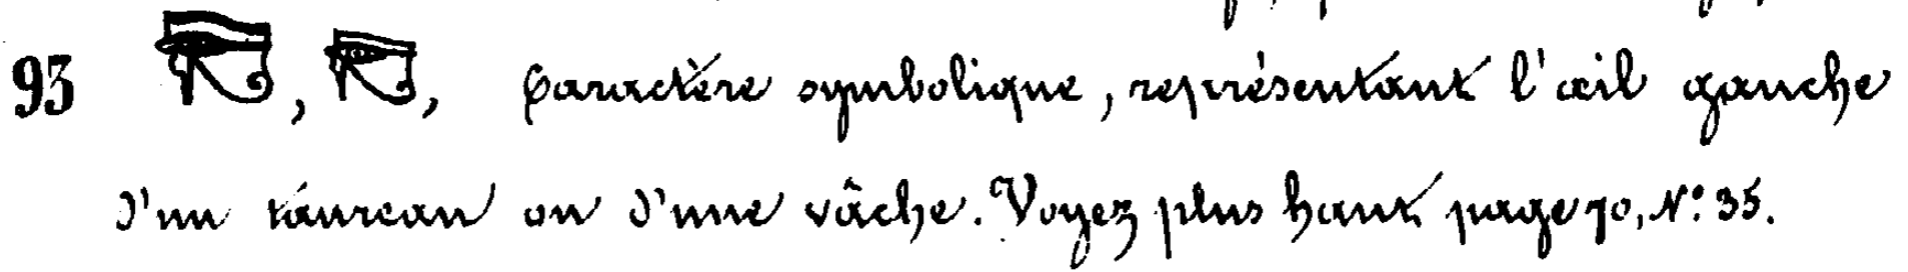 93 𓂀, 𓂀, Caractère symbolique, représentant l'œil gauche
d'un táureau ou d'une vâche. Voyez plus haut page 70, N.º 35.